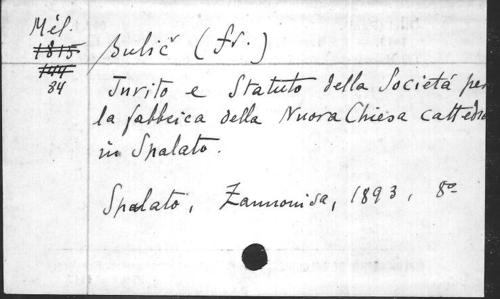 Mél.
1815
144
84
Bulič (Fr.)
Invito e Statuto della Societá per
la fabbrica della Nuova Chiesa cattedra
in Spalato.
Spalato, Zannonisa, 1893, 8º